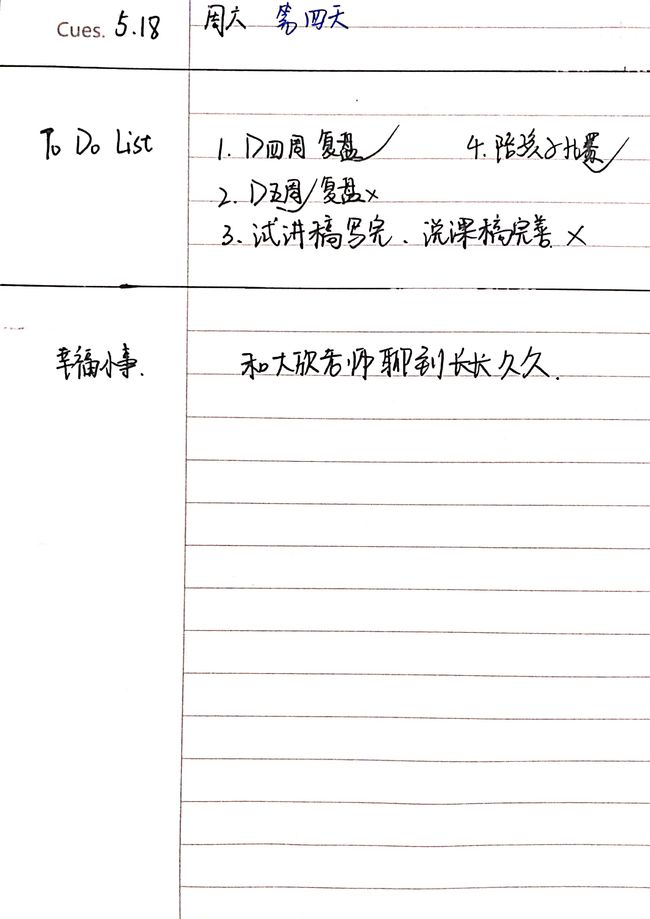 Cues. 5.18 周六 第四天
To Do List 1. D四周复盘✓ 4. 陪孩子比赛✓
2. D五周/复盘×
3. 试讲稿写完、说课稿完善 ×
幸福小事. 和大欣老师聊到长长久久.